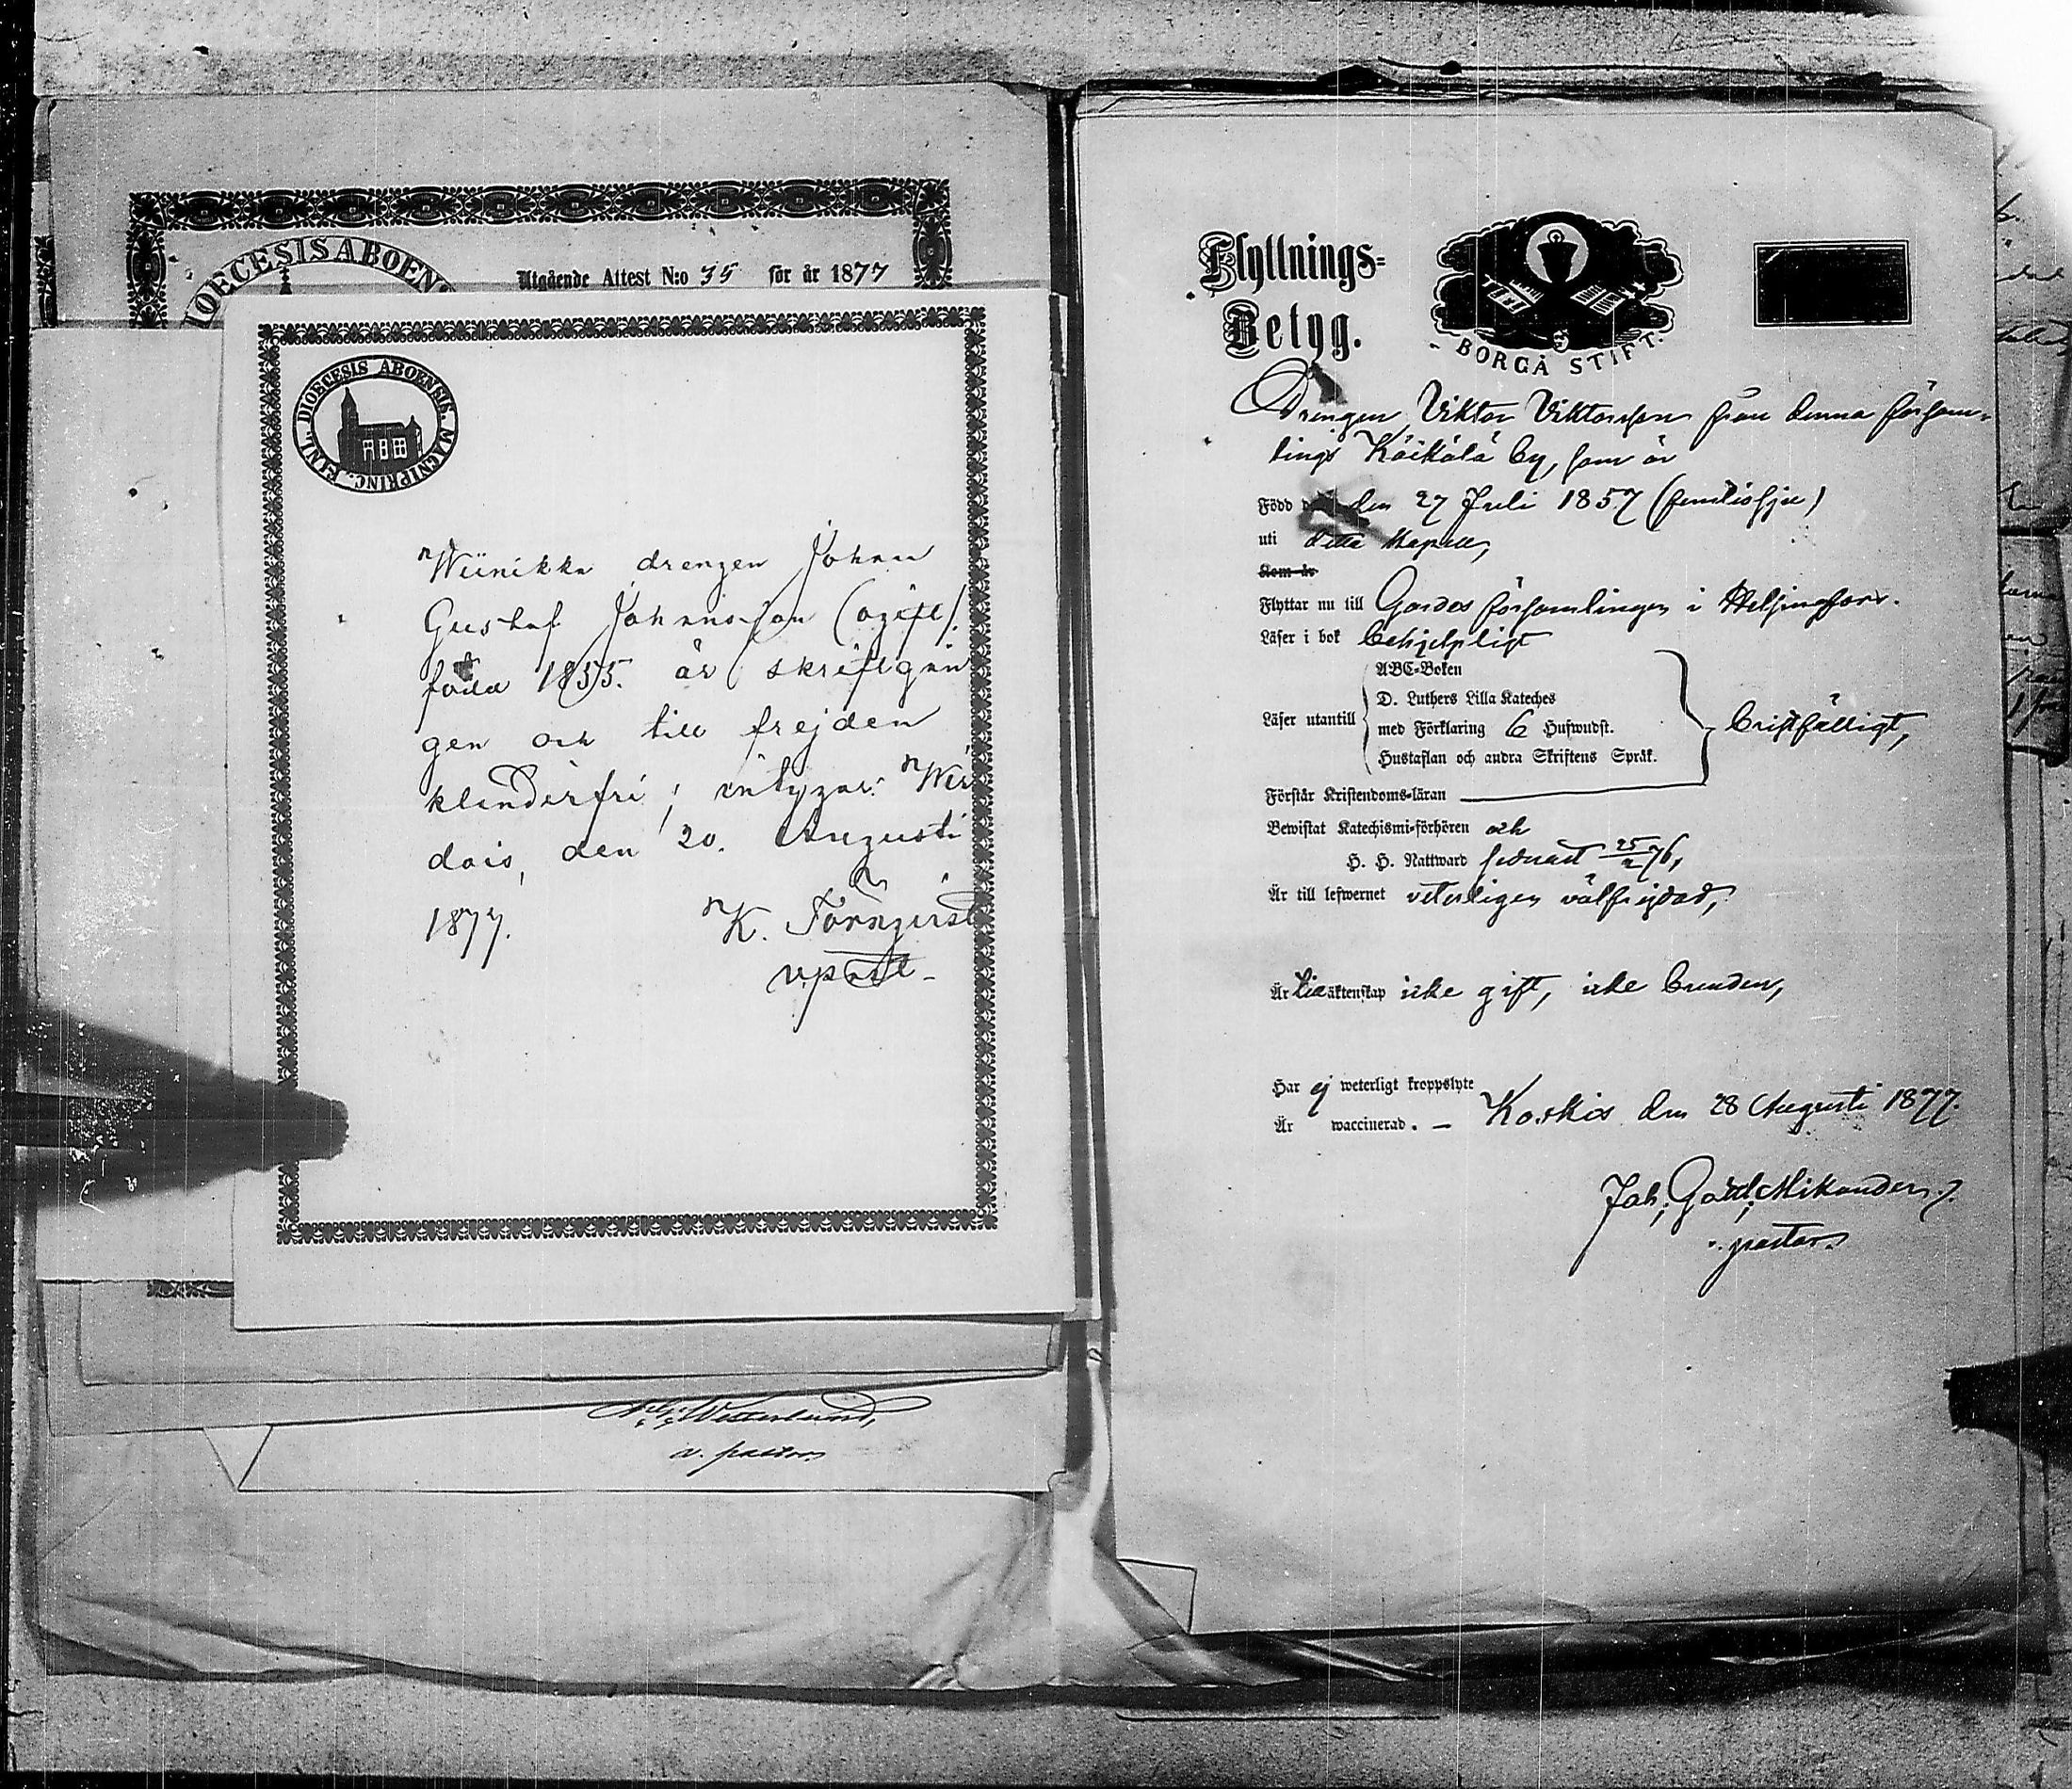 DIOECESIS ABOEN
Utgående Attest N:o 35 för år 1877
DIOECESIS ABOENSIS. MAGNIPRINC. FINL.
Wiinikka drengen Johan
Gustaf Johansson (ogift).
född 1855. är skriftgån
gen och till frejden
klanderfri; intygar: Wir
dois, den 20. Augusti
1877. K. Törnqvist
v. past.
v. pastor
Flyttnings-
Betyg.
BORGÅ STIFT.
Drengen Viktor Viktorsson från denna församlings
Käikälä by, som är
Född den 27 Juli 1857
uti detta kapell,
Som är
Flyttar nu till Gardes församlingen i Helsingfors.
Läser i bok behjelpligt
ABC-Boken
D. Luthers Lilla Kateches
Läser utantill med Förklaring 6 Hufwudst. bristfälligt,
Hustaflan och andra Skriftens Språk.
Förstår Kristendoms-läran
Bewistat Katechismi-förhören och
H. H. Nattward senast 25/2 76,
Är till lefwernet veterligen välfrejdad,
Är till äktenskap icke gift, icke bunden,
Har ej weterligt kroppslyte
Är waccinerad. — Koskis den 28 Augusti 1877.
Joh. Gottl. Mikander
v. pastor.